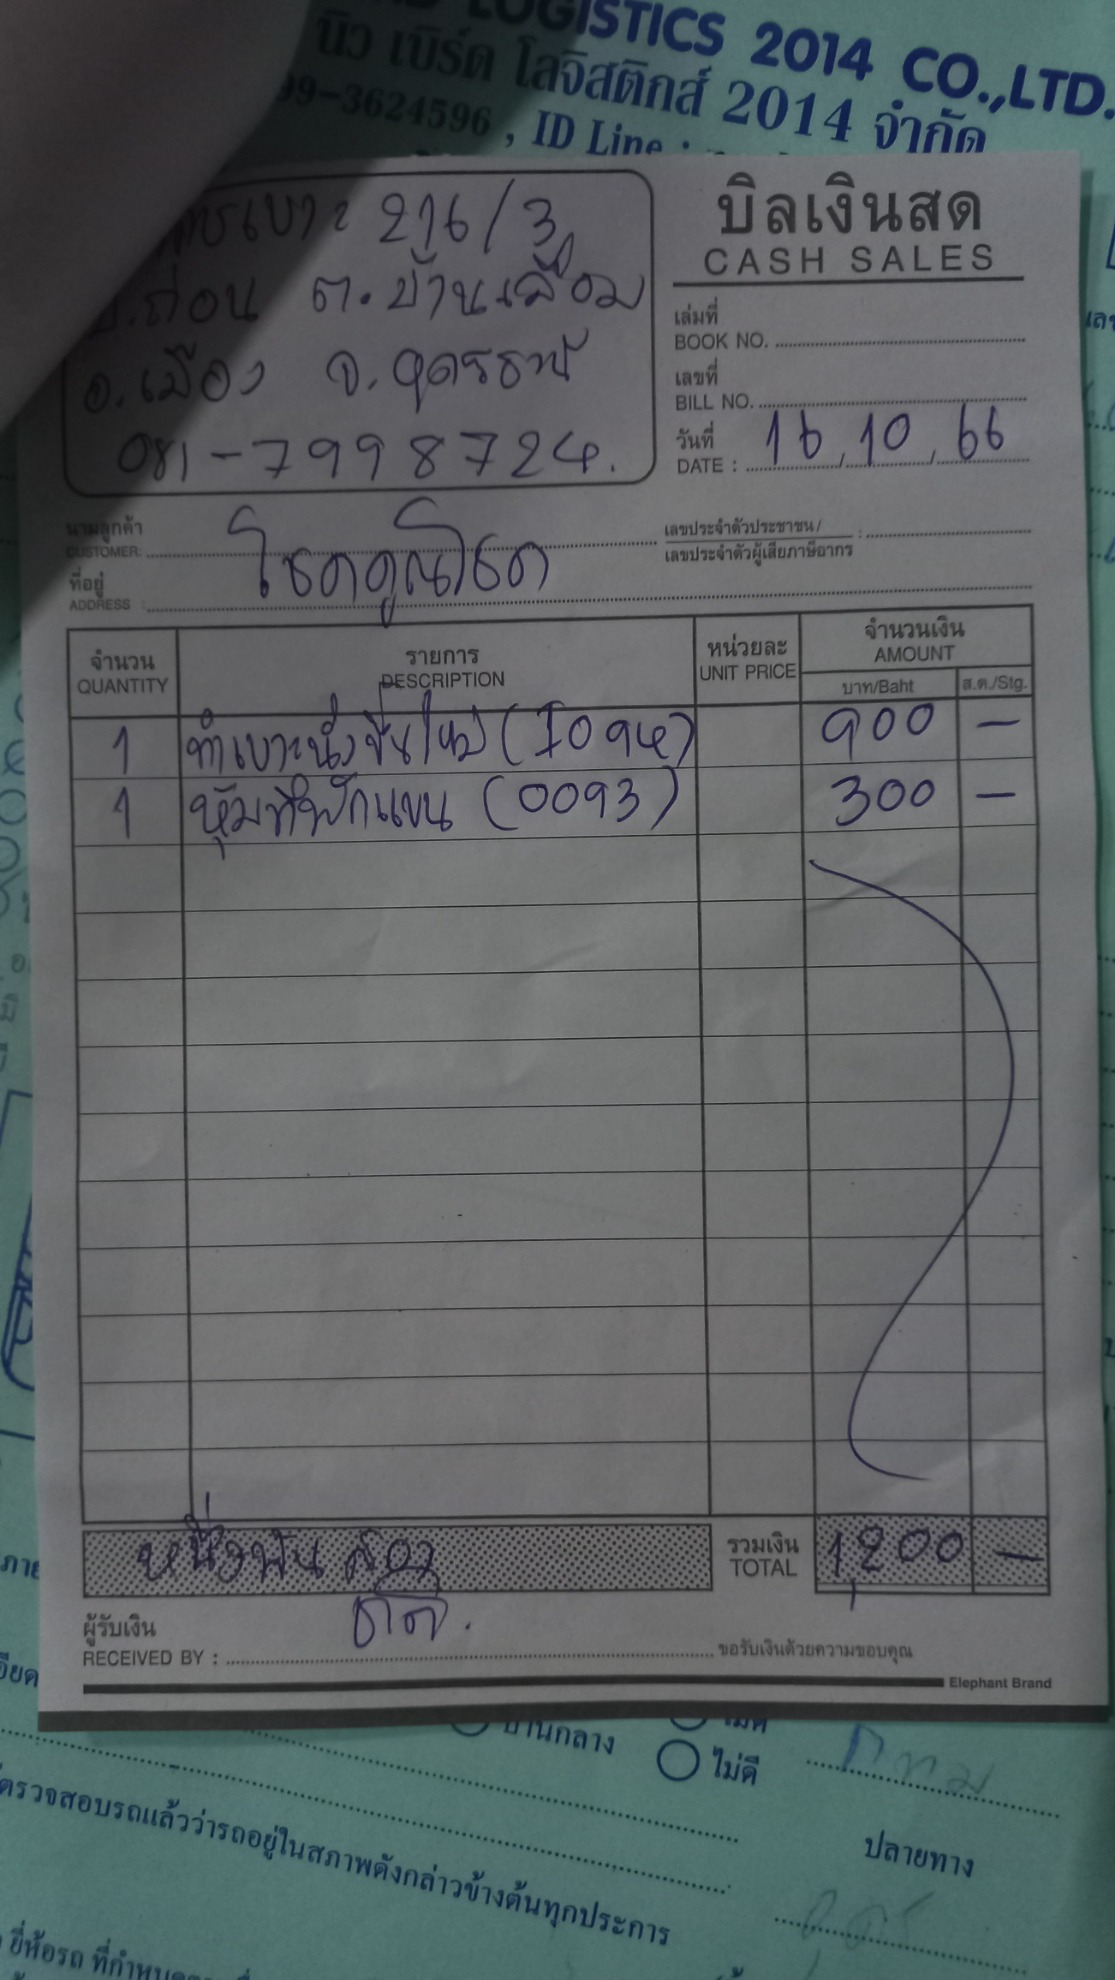 LOGISTICS 2014 CO.,LTD.
นิว เบิร์ด โลจิสติกส์ 2014 จำกัด
99-3624596 , ID Line :
บิลเงินสด
CASH SALES
เบาะ 216/3
ต.บ้านเลื่อม
อ.เมือง จ.อุดรธานี
081-7998724.
เล่มที่
BOOK NO.
เลขที่
BILL NO.
วันที่
DATE : 16, 10, 66
นามลูกค้า
CUSTOMER: โชคคูณโชค
เลขประจำตัวประชาชน /
เลขประจำตัวผู้เสียภาษีอากร :
ที่อยู่
ADDRESS :
จำนวน รายการ หน่วยละ จำนวนเงิน
QUANTITY DESCRIPTION UNIT PRICE AMOUNT
บาท/Baht ส.ต./Stg.
1 ทำเบาะนั่งขึ้นใหม่ 900 –
1 หุ้มที่พักแขน (0093) 300 –
หนึ่งพันสอง
รวมเงิน
TOTAL 1,200 –
ผู้รับเงิน
RECEIVED BY :
ขอรับเงินด้วยความขอบคุณ
Elephant Brand
ปานกลาง
ไม่ดี
ตรวจสอบรถแล้วว่ารถอยู่ในสภาพดังกล่าวข้างต้นทุกประการ
ปลายทาง
ยี่ห้อรถ